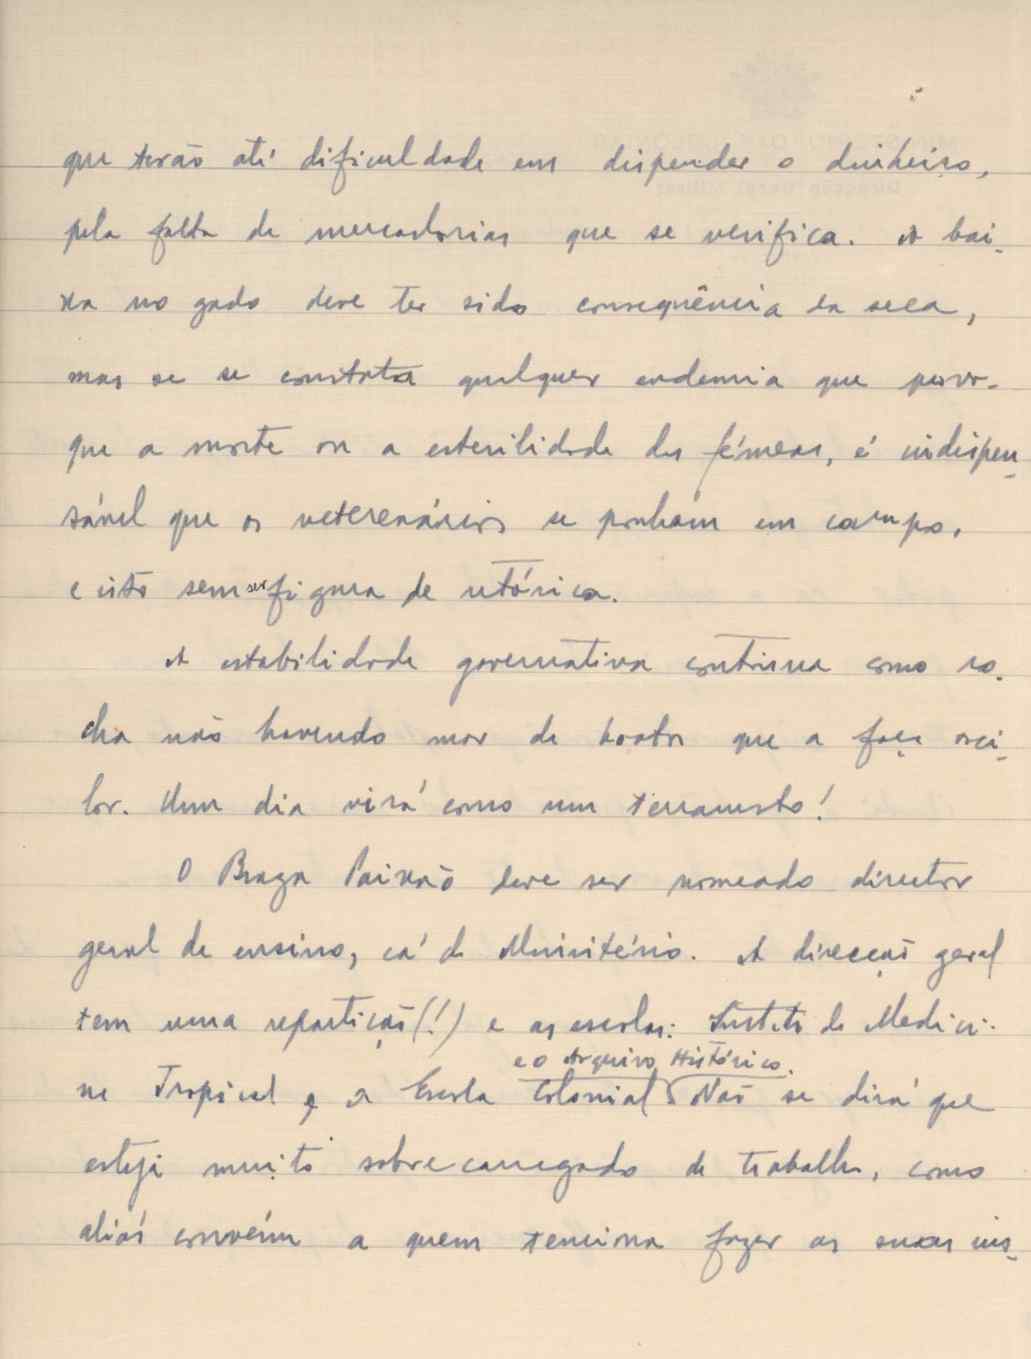 que terão até dificuldade em dispender o dinheiro,
pela falta de mercadorias que se verifica. A bai-
xa no gado deve ter sido consequência da seca,
mas se se constata qualquer endemia que provo-
que a morte ou a esterilidade das fémeas, é indispen-
sável que os veterenários se ponham em campo,
e isto sem ser figura de retórica.
A estabilidade governativa continua como ro-
cha não havendo mar de boatos que a faça osci-
lar. Um dia virá como um terramoto!
O Braga Paixão deve ser nomeado director
geral de ensino, cá do Ministério. A direcção geral
tem uma repartição(!) e as escolas: Instituto de Medici-
e o Arquivo Histórico.
na Tropical, a Escola Colonial Não se dirá que
esteja muito sobrecarregado de trabalho, como
aliás convém a quem tenciona fazer as suas ins-